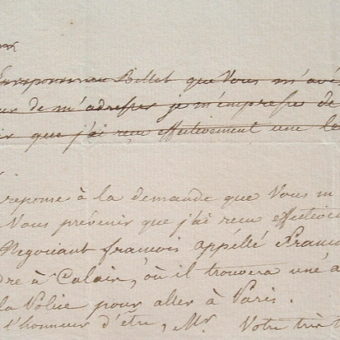 En réponse au Billet que Vous m'avé
de m'adresser je m'empresse de
que j'ai reçu effectivement une le
reponse à la demande que Vous m
Vous prévenir que j'ai reçu effectivem
Negociant francois appellé Franc
à Calais, où il trouvera une a
la Police pour aller à Paris.
l'honneur d'être, Mr. Votre très